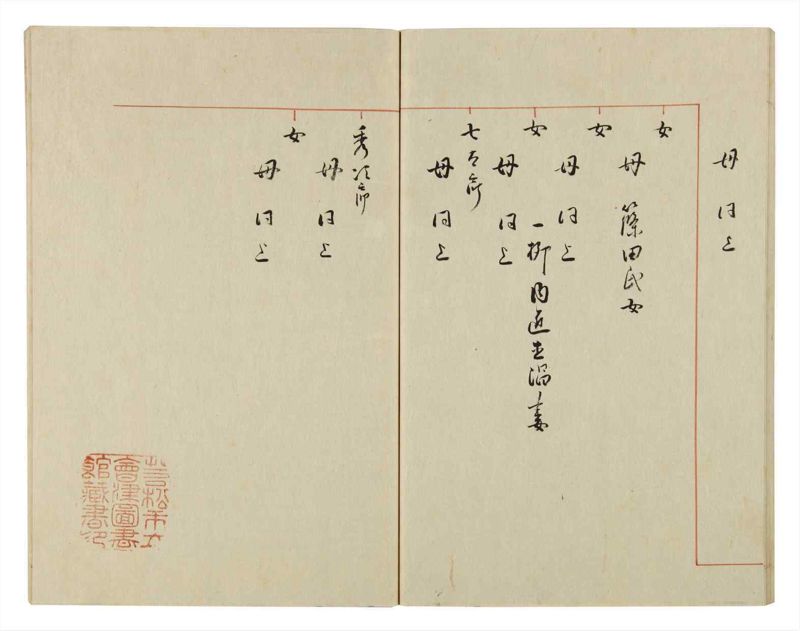 母同上
女
母篠田氏女
女
母同上
女
一柳内匠直陽妻
母同上
七太郎
母同上
秀次郎
母同上
女
母同上
若松市立
會津圖書
館藏書印